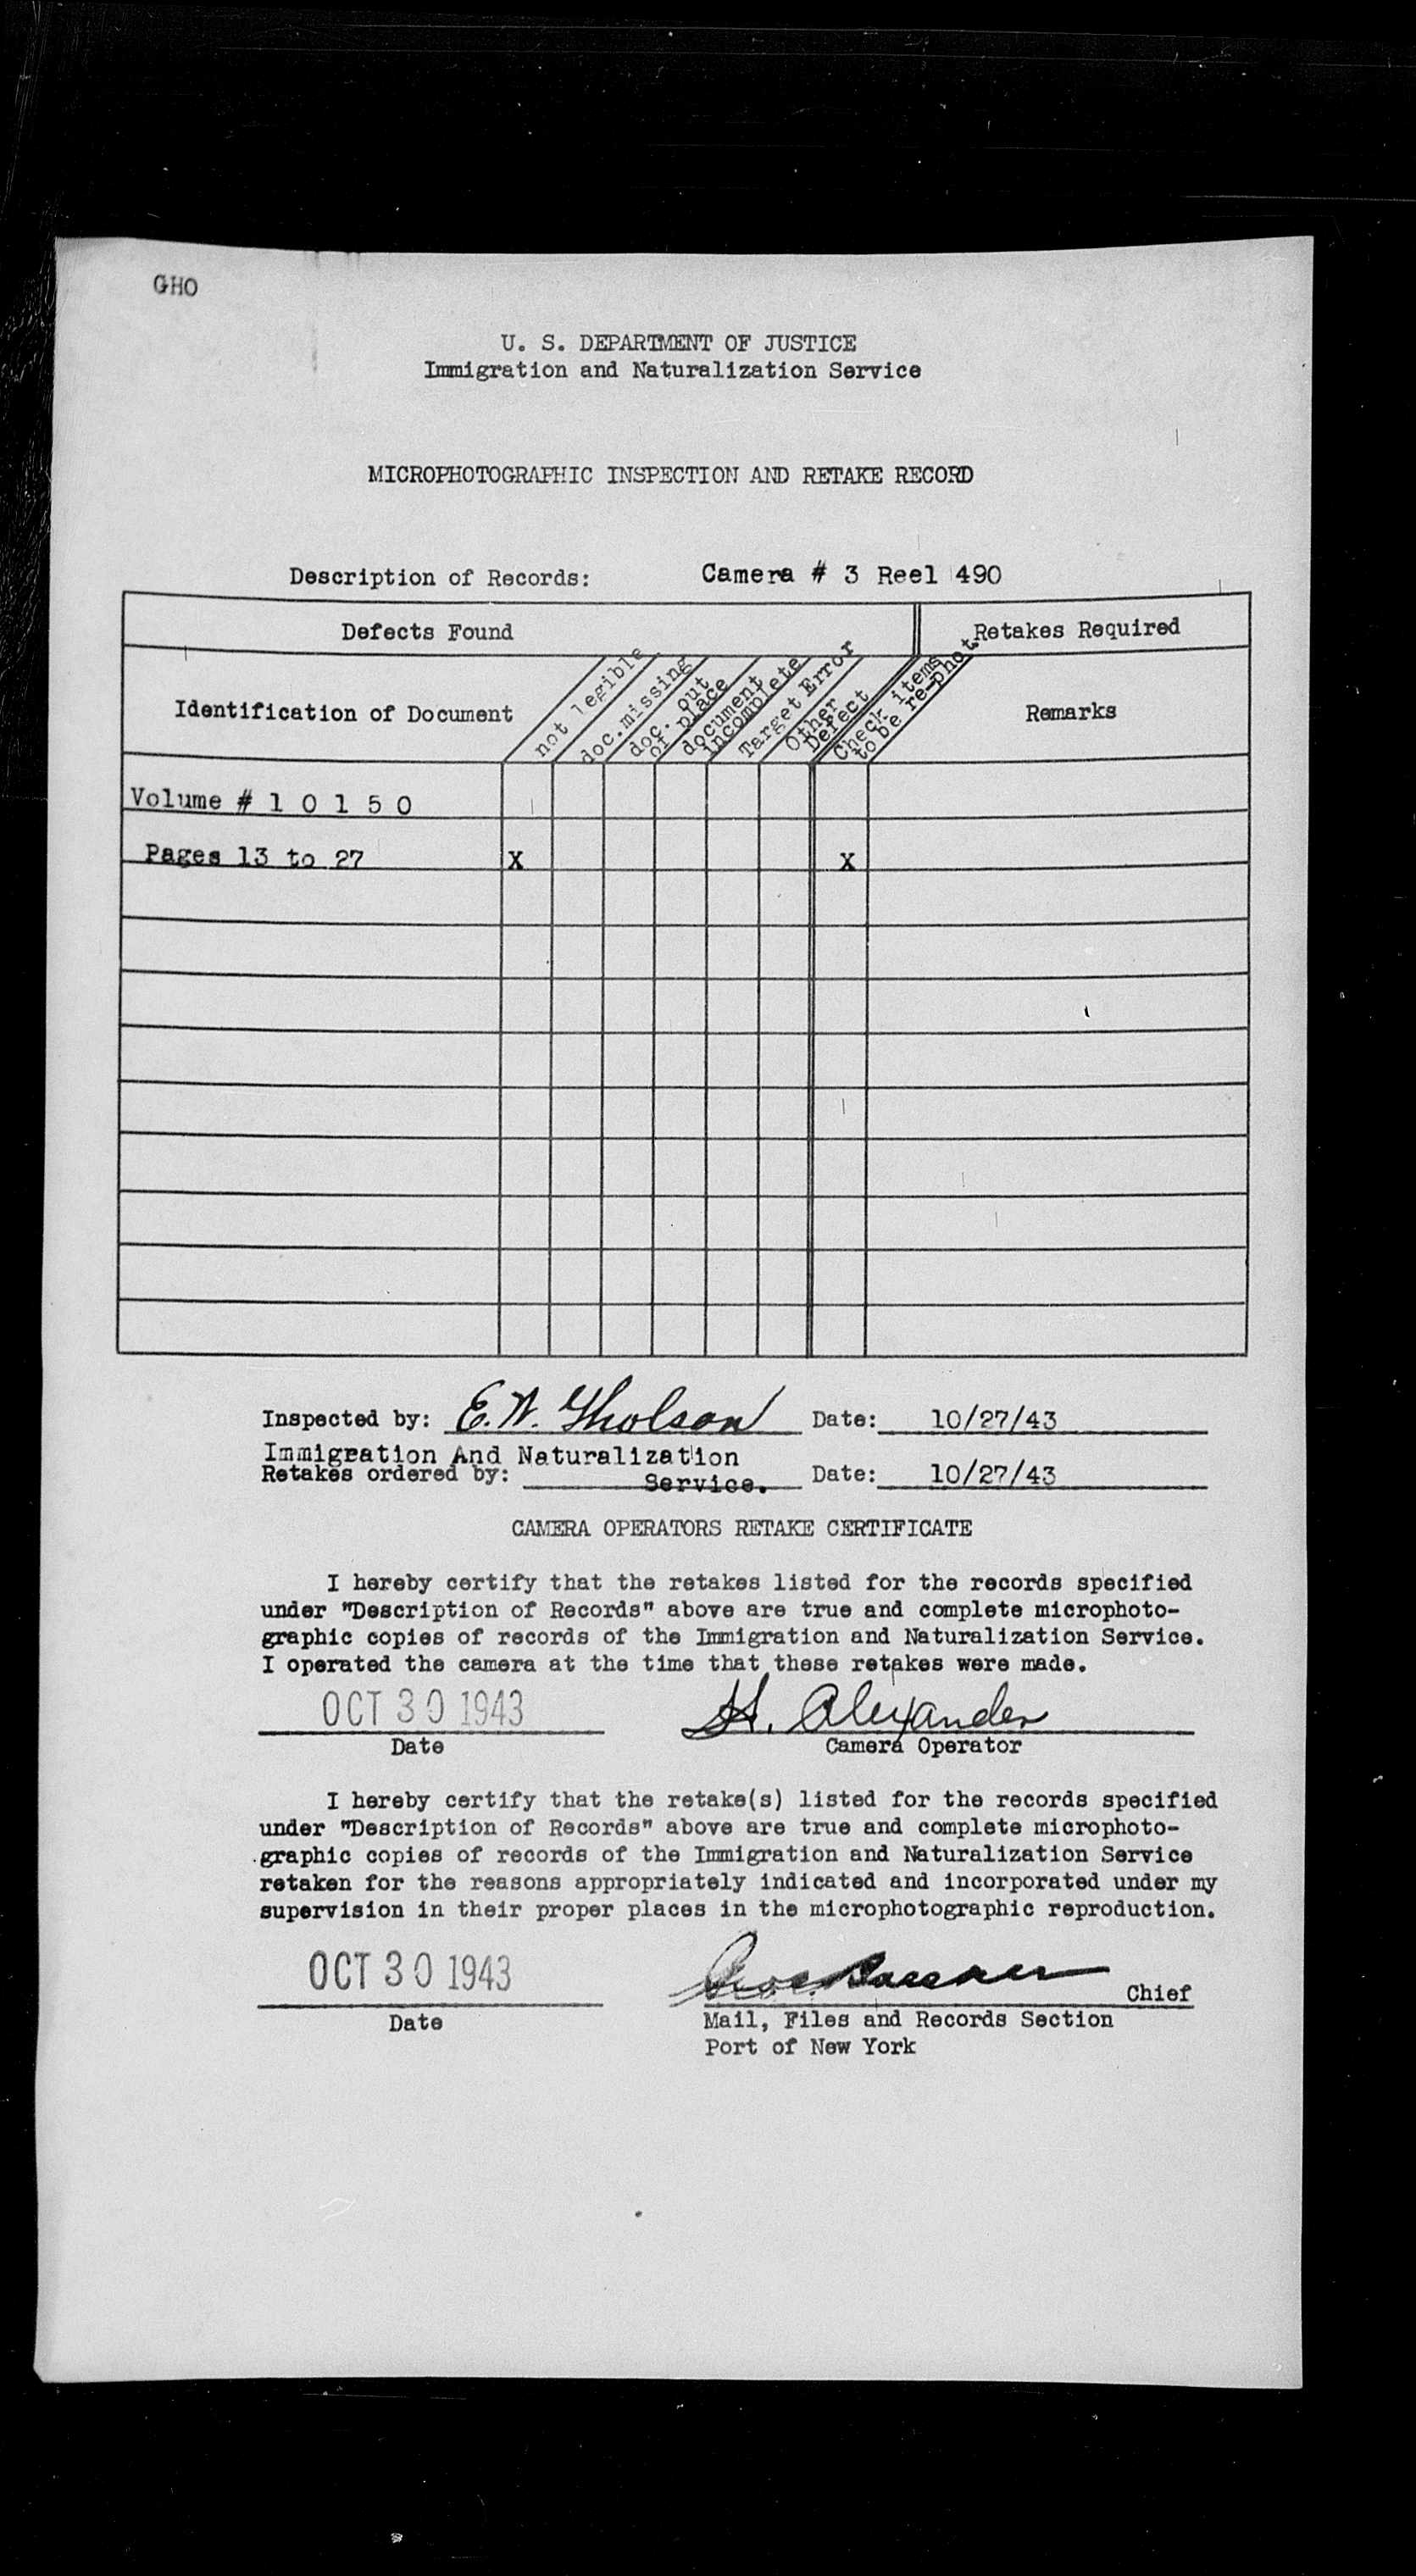 GHO
U. S. DEPARTMENT OF JUSTICE
Immigration and Naturalization Service
MICROPHOTOGRAPHIC INSPECTION AND RETAKE RECORD
Description of Records: Camera # 3 Reel 490
Defects Found Retakes Required
Identification of Document
not legible
doc.missing
doc. out
of place
document
incomplete
Target Error
Other
Defect
Check items
to be re-phot.
Remarks
Volume # 1 0 1 5 0
Pages 13 to 27 X X
Inspected by: E. W. Gholson Date: 10/27/43
Immigration And Naturalization
Retakes ordered by: Service. Date: 10/27/43
CAMERA OPERATORS RETAKE CERTIFICATE
I hereby certify that the retakes listed for the records specified
under "Description of Records" above are true and complete microphoto-
graphic copies of records of the Immigration and Naturalization Service.
I operated the camera at the time that these retakes were made.
OCT 30 1943 H. Alexander
Date Camera Operator
I hereby certify that the retake(s) listed for the records specified
under "Description of Records" above are true and complete microphoto-
graphic copies of records of the Immigration and Naturalization Service
retaken for the reasons appropriately indicated and incorporated under my
supervision in their proper places in the microphotographic reproduction.
OCT 30 1943 Chief
Date Mail, Files and Records Section
Port of New York